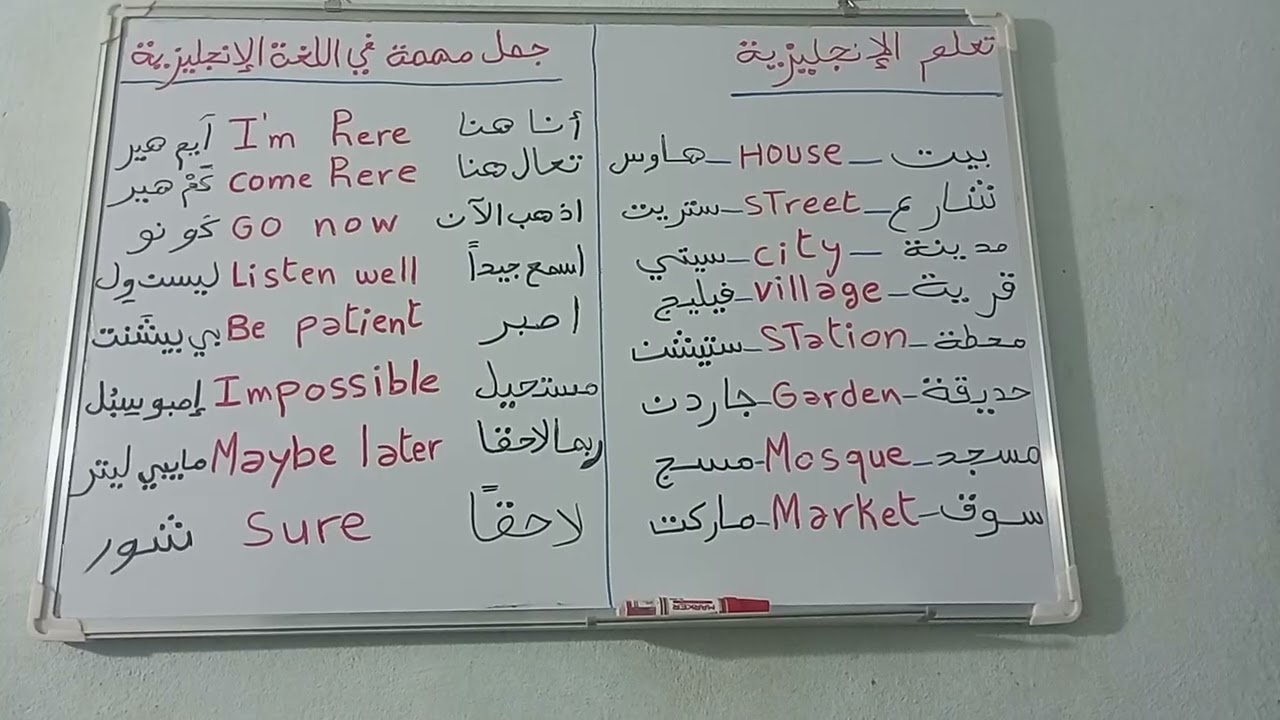 تعلم الإنجليزية
بيت - HOUSE - هاوس
شارع - STreet - ستريت
مدينة - city - سيتي
قرية - village - فيليج
محطة - STation - ستيشن
حديقة - Garden - جاردن
مسجد - Mosque - مسج
سوق - Market - ماركت
جمل مهمة في اللغة الإنجليزية
أنا هنا I'm here آيم هير
تعال هنا come here كم هير
اذهب الآن GO now كو نو
اسمع جيداً Listen well ليست ول
اصبر Be patient بي بيشنت
مستحيل Impossible إمبوسبل
ربما لاحقا Maybe later مايبي ليتر
لاحقاً Sure شور
MARKER